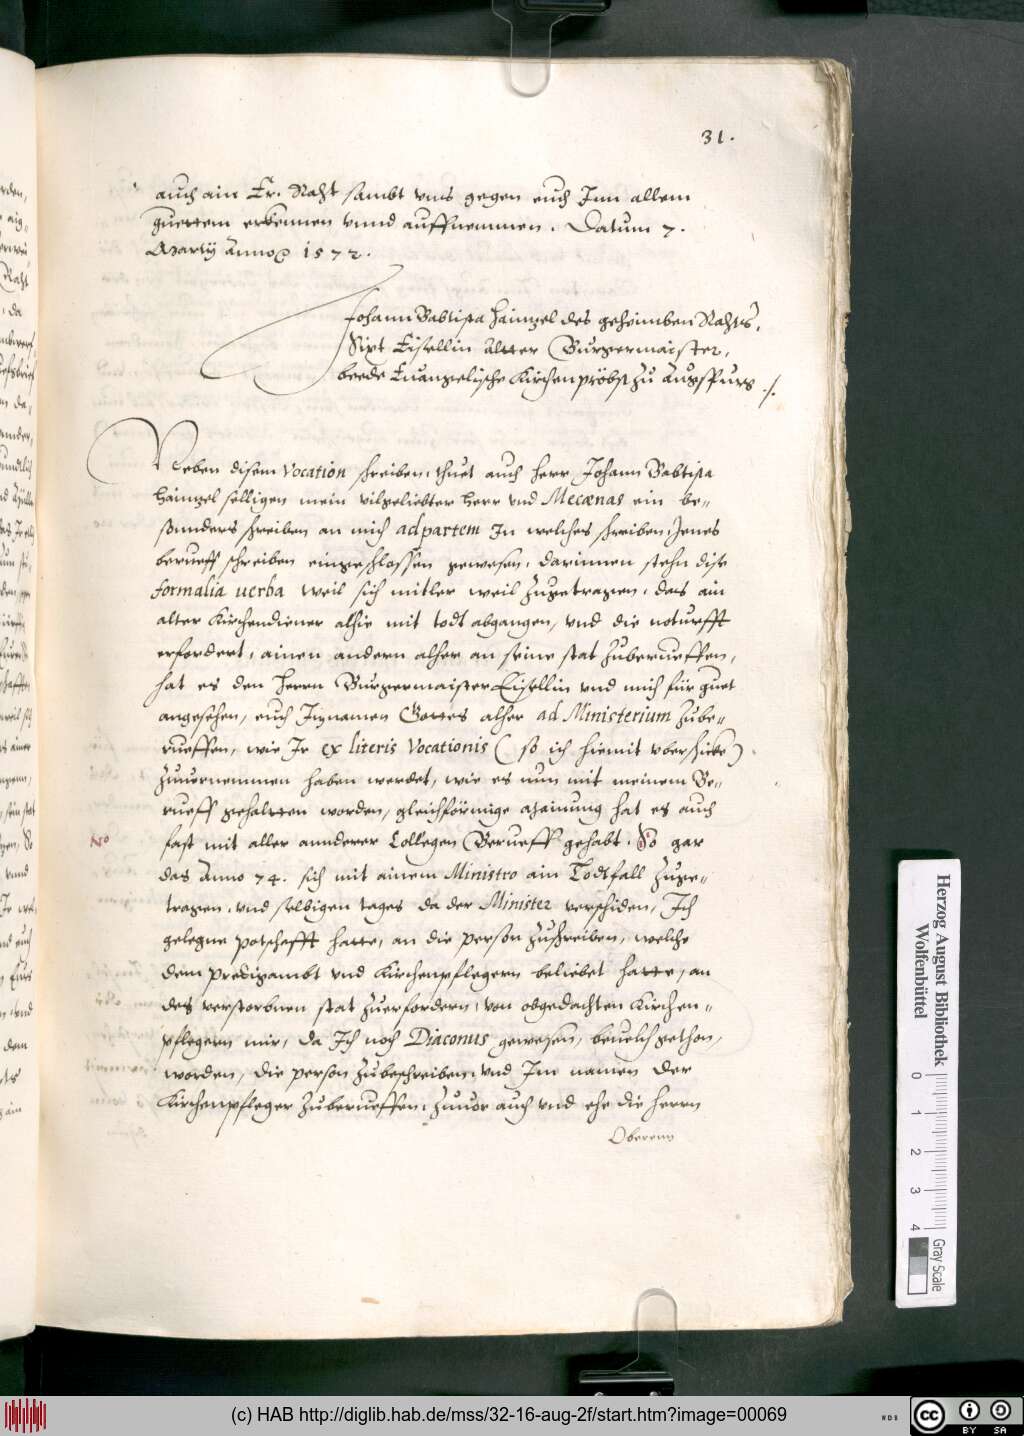 31.
auch ain Er. Raht sambt vns gegen euch Inn allem
guettem erkennen vnnd auffnemmen. Datum 7.
Martij Anno 1572.
Johann Babtista Hainzel des geheimben Rahts,
Sixt Eisellin Altter Burgermaister,
beede Euangelische Kirchenpröbst zu Augspurg ./.
Neben disem Vocation schreiben, thuet auch Herr Johann Babtista
Hainzel selligen mein vilgeliebter Herr vnd Mecænas ein be-
sonnders schreiben an mich ad partem In welches schreiben, Jenes
berueff schreiben eingeschlossen gewesen, darinnen stehn dise
formalia uerba weil sich mitler weil zugetragen, das ain
alter Kirchendiener alhie mit todt abgangen, vnd die noturfft
erfordert, ainen andern alher an seine stat zuberueffen,
hat es den Herrn Burgermaister Eisellin vnd mich für guet
angesehen, euch Jnnamen Gottes alher ad Ministerium zube-
rueffen, wie Ir ex literis Vocationis (so ich hiemit vberschicke)
zuuernemmen haben werdet, wie es nun mit meinem Be-
rueff gehaltten worden, gleichförmige mainung hat es auch
No fast mit aller annderer Collegen Berueff gehabt. So gar
das Anno 74. sich mit ainem Ministro ain Todtfall zuge-
tragen, vnd selbigen tages da der Minister verschiden, Ich
gelegne potschafft hatte, an die person zuschreiben, welche
dem predigambt vnd Kirchenpflegern beliebet hatte, an
des verstorbnen stat zuerfordern, von obgedachten Kirchen-
pflegern mir, da Ich noch Diaconus gewesen, beuelch gethon,
worden, die person zubeschreiben, vnd Im namen der
Kirchenpfleger zuberueffen, zuuor auch vnd ehe die Herrn
Herzog August Bibliothek
Wolfenbüttel
0 1 2 3 4
Gray Scale
(c) HAB http://diglib.hab.de/mss/32-16-aug-2f/start.htm?image=00069
WDB
cc
BY SA